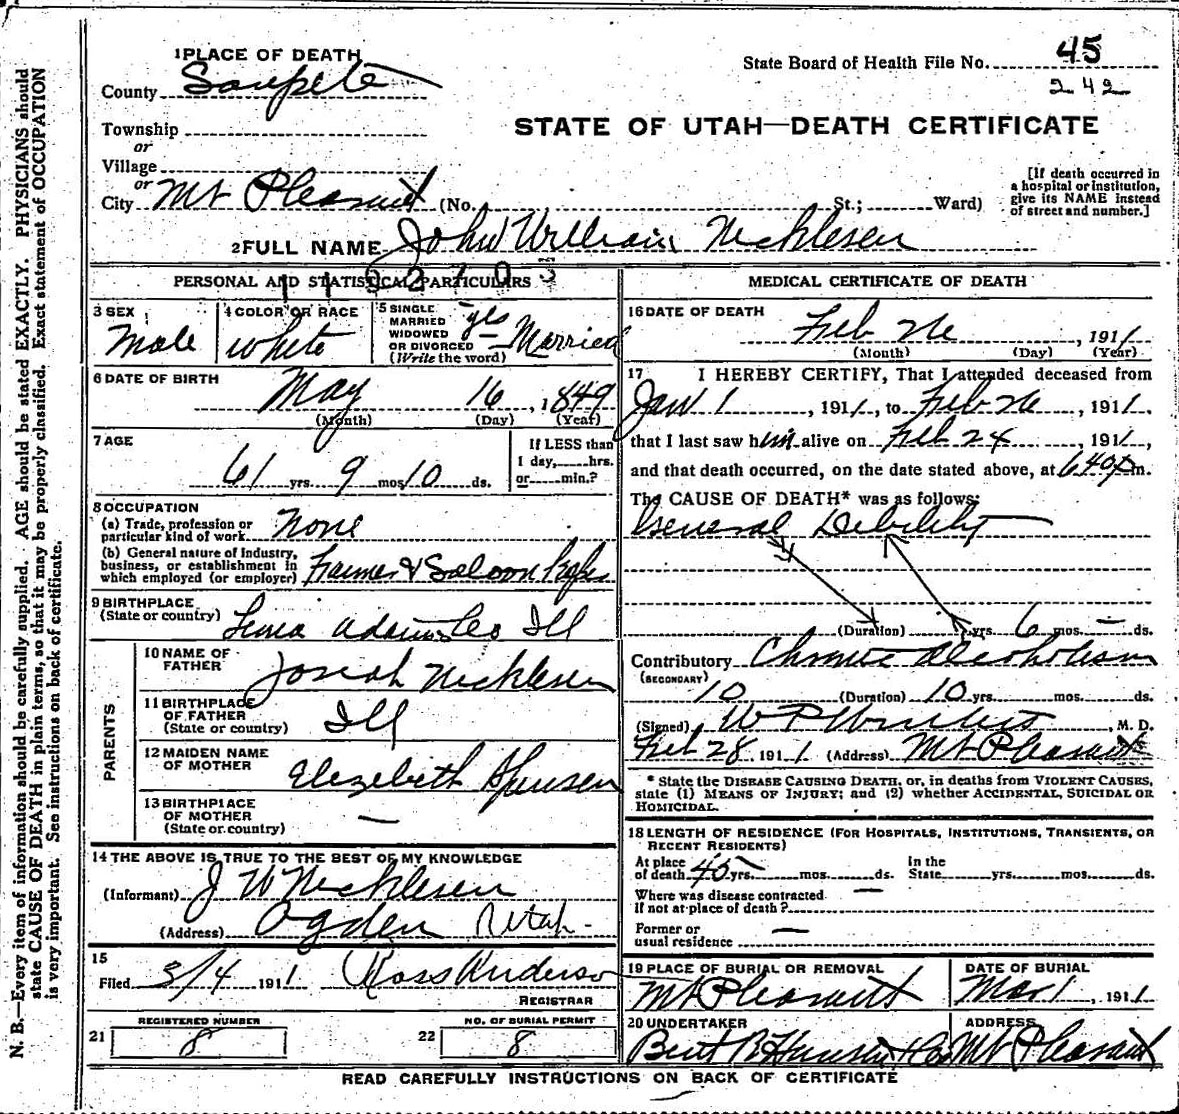 1 PLACE OF DEATH
County Sanpete
Township
or
Village
or
City Mt Pleasant (No. St.; Ward)
State Board of Health File No. 45
242
STATE OF UTAH—DEATH CERTIFICATE
[If death occurred in
a hospital or institution,
give its NAME instead
of street and number.]
2 FULL NAME John William Necklesen
PERSONAL AND STATISTICAL PARTICULARS
3 SEX
Male
4 COLOR OR RACE
White
5 SINGLE
MARRIED yes
WIDOWED
OR DIVORCED Married
(Write the word)
6 DATE OF BIRTH
May 16, 1849
(Month) (Day) (Year)
7 AGE
61 yrs. 9 mos. 10 ds.
If LESS than
1 day, hrs.
or min.?
8 OCCUPATION
(a) Trade, profession or
particular kind of work None
(b) General nature of Industry,
business, or establishment in
which employed (or employer) Farmer & Saloon
9 BIRTHPLACE
(State or country) Lima Adams Co Ill
PARENTS
10 NAME OF
FATHER Josiah Necklesen
11 BIRTHPLACE
OF FATHER
(State or country) Ill
12 MAIDEN NAME
OF MOTHER Elezebeth
13 BIRTHPLACE
OF MOTHER
(State or country) —
14 THE ABOVE IS TRUE TO THE BEST OF MY KNOWLEDGE
(Informant) J W Necklesen
(Address) Ogden Utah-
15
Filed 3/4 1911 Ross Anderson
REGISTRAR
21 REGISTERED NUMBER
8
22 NO. OF BURIAL PERMIT
8
MEDICAL CERTIFICATE OF DEATH
16 DATE OF DEATH
Feb 26, 1911
(Month) (Day) (Year)
17 I HEREBY CERTIFY, That I attended deceased from
Jan 1, 1911, to Feb 26, 1911,
that I last saw him alive on Feb 24, 1911,
and that death occurred, on the date stated above, at 640 p m.
The CAUSE OF DEATH* was as follows:
General Debility
(Duration) yrs. 6 mos. — ds.
Contributory Chronic Alcoholism
(SECONDARY)
10 (Duration) 10 yrs. mos. ds.
(Signed) W P , M. D.
Feb 28, 1911 (Address) Mt Pleasant
* State the DISEASE CAUSING DEATH, or, in deaths from VIOLENT CAUSES,
state (1) MEANS OF INJURY; and (2) whether ACCIDENTAL, SUICIDAL OR
HOMICIDAL.
18 LENGTH OF RESIDENCE (FOR HOSPITALS, INSTITUTIONS, TRANSIENTS, OR
RECENT RESIDENTS)
At place
of death 45 yrs. mos. ds.
In the
State yrs. mos. ds.
Where was disease contracted
if not at place of death? —
Former or
usual residence —
19 PLACE OF BURIAL OR REMOVAL
Mt Pleasant
DATE OF BURIAL
Mar 1, 1911
20 UNDERTAKER
ADDRESS
Mt Pleasant
READ CAREFULLY INSTRUCTIONS ON BACK OF CERTIFICATE
N. B.—Every item of information should be carefully supplied. AGE should be stated EXACTLY. PHYSICIANS should
state CAUSE OF DEATH in plain terms, so that it may be properly classified. Exact statement of OCCUPATION
is very important. See instructions on back of certificate.